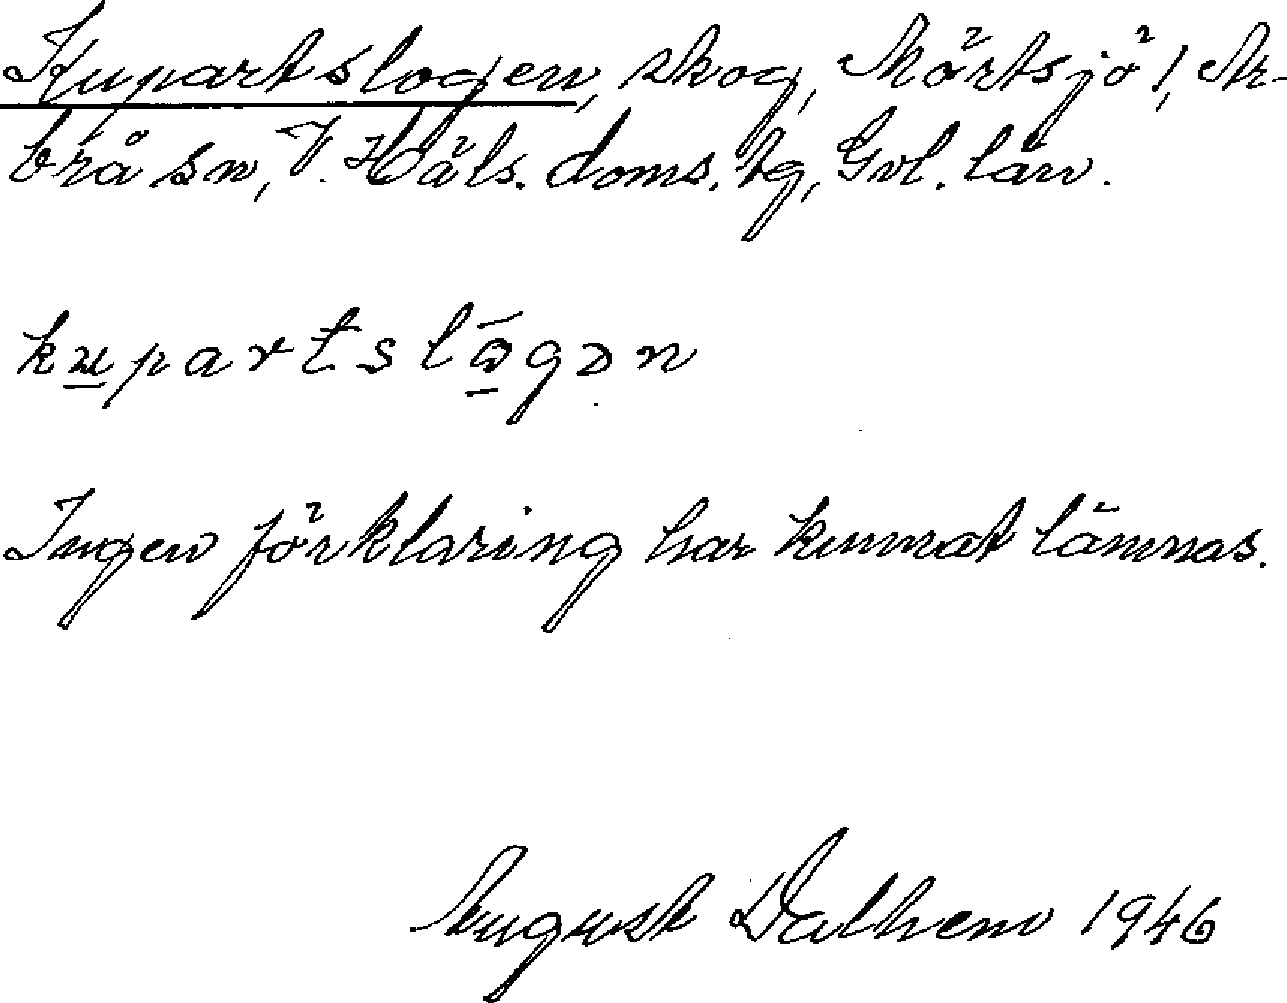 Kupartslogen, skog, Mörtsjö 1, Ar-
brå sn, V. Häls. doms. tg, Gvl. län.
ku̲partslō̲gən
Ingen förklaring har kunnat lämnas.
August Dalhem 1946